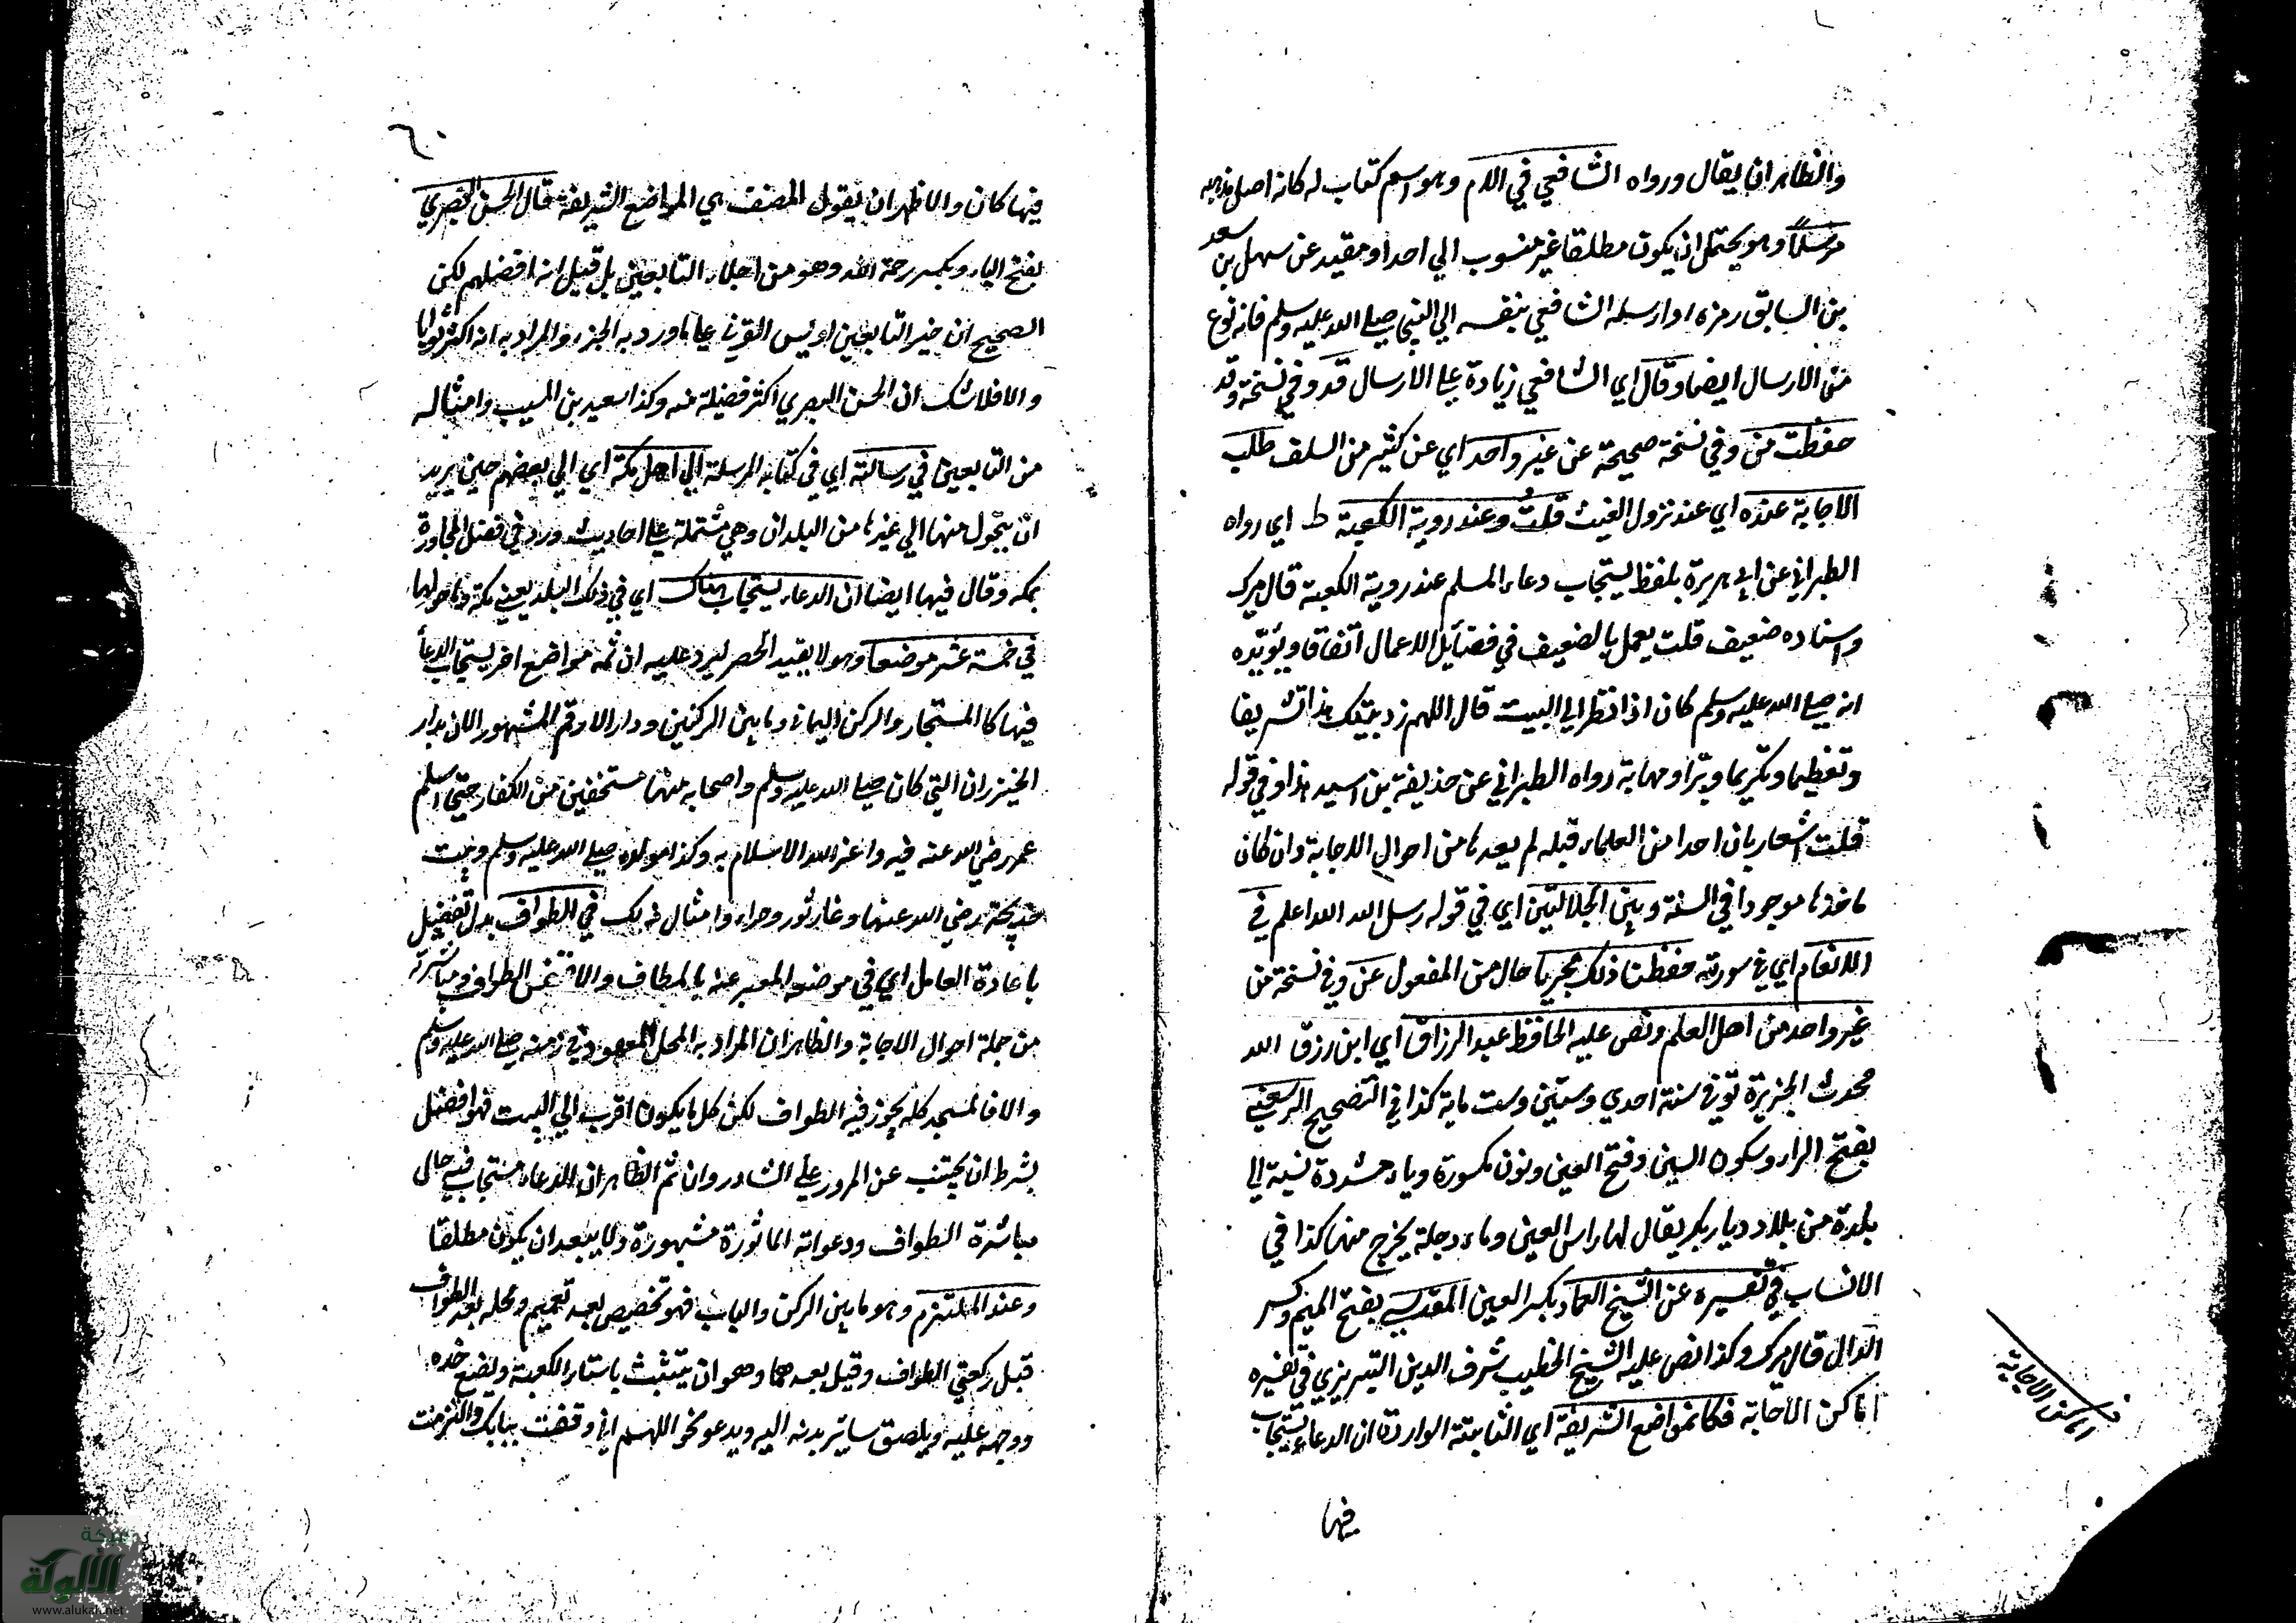 والظاهر ان يقال ورواه الشافعي في الام وهو اسم كتاب له كانه اصل مذهبه
مرسلا وهو يحتمل ان يكون مطلقا غير منسوب الي احد او مقيد عن سهل بن سعد
بن السابق رمزه او ارسله الشافعي بنفسه الي النبي صلى الله عليه وسلم فانه نوع
من الارسال ايضا وقال اي الشافعي زيادة على الارسال قد وفي نسخة وقد
حفظت من وفي نسخة صحيحة عن غير واحد اي عن كثير من السلف طلب
الاجابة عنده اي عند نزول الغيث قلت وعند روية الكعبة ط اي رواه
الطبراني عن ابي هريرة بلفظ يستجاب دعاء المسلم عند روية الكعبة قال ميرك
واسناده ضعيف قلت يعمل بالضعيف في فضايل الاعمال اتفاقا ويؤيده
انه صلى الله عليه وسلم كان اذا نظر الي البيت قال اللهم زد بيتك هذا تشريفا
وتعظيما وتكريما وبرا ومهابة رواه الطبراني عن حذيفة بن اسيد هذا وفي قوله
قلت اشعار بان احدا من العلماء قبله لم يعدها من احوال الاجابة وان كان
ماخذها موجودا في السنة وبين الجلالتين اي في قوله رسل الله الله اعلم في
الانعام اي في سورته حفظنا ذلك مجربا حال من المفعول عن وفي نسخة من
غير واحد من اهل العلم ونص عليه الحافظ عبد الرزاق اي ابن رزق الله
محدث الجزيرة توفي سنة احدي وستين وست ماية كذا في التصحيح الرسعني
بفتح الراء وسكون السين وفتح العين ونون مكسورة وياء مشددة نسبة الي
بلدة من بلاد ديار بكر يقال لها راس العين وماء دجلة يخرج منها كذا في
الانساب في تفسيره عن الشيخ العماد بكسر العين المقدسي بفتح الميم وكسر
الدال قال ميرك وكذا نص عليه الشيخ الخطيب شرف الدين التبريزي في تفسيره
اماكن الاجابة فكالمواضع الشريفة اي الثابتة الواردة ان الدعاء يستجاب
فيها
اماكن الاجابة
٦٠
فيها كان والاظهر ان يقول المصنف هي المواضع الشريفة قال الحسن البصري
بفتح الباء وبكسر رحمة الله وهو من اجلاء التابعين بل قيل انه افضلهم لكن
الصحيح ان خير التابعين اويس القرني على ما ورد به الخبر والمراد به انه اكثر ثوابا
والا فلا شك ان الحسن البصري اكثر فضيلة منه وكذا سعيد بن المسيب وامثاله
من التابعين في رسالته اي في كتابه المرسلة الي اهل مكة اي الي بعضهم حين يريد
ان يتحول منها الي غيرها من البلدان وهي مشتملة على احاديث ورد في فضل المجاورة
بمكه وقال فيها ايضا ان الدعاء يستجاب هناك اي في ذلك البلد يعني مكة وما حولها
في خمسة عشر موضعا وهو لا يفيد الحصر ليرد عليه ان ثمه مواضع اخر يستجاب الدعا
فيها كالمستجار والركن اليماني وما بين الركنين ودار الارقم المشهور الان بدار
الخيزران التي كان صلى الله عليه وسلم واصحابه فيها مستخفين من الكفار حتى اسلم
عمر رضي الله عنه فيه واعز الله الاسلام به وكذا مولده صلى الله عليه وسلم وبيت
خديجة رضي الله عنها وغار ثور وحراء وامثال ذلك في الطواف بدل تفصيل
باعادة العامل اي في موضعه المعبر عنه بالمطاف والا فنفس الطواف ومباشرته
من جملة احوال الاجابة والظاهر ان المراد به المحل المعهود في زمنه صلى الله عليه وسلم
والا فالمسجد كله يجوز فيه الطواف لكن كل ما يكون اقرب الي البيت فهو افضل
بشرط ان يجتنب عن المرور على الشاذروان ثم الظاهر ان الدعاء مستجاب فيه حال
مباشرة الطواف ودعواته الماثورة مشهورة ولا يبعد ان يكون مطلقا
وعند الملتزم وهو ما بين الركن والباب فهو تخصيص بعد تعميم ومحله بعد الطواف
قبل ركعتي الطواف وقيل بعدهما وهو ان يتشبث باستار الكعبة ويضع خده
ووجهه عليه ويلصق سائر بدنه اليه ويدعو نحو اللهم اني وقفت ببابك والتزمت
شبكة
الألوكة
www.alukah.net